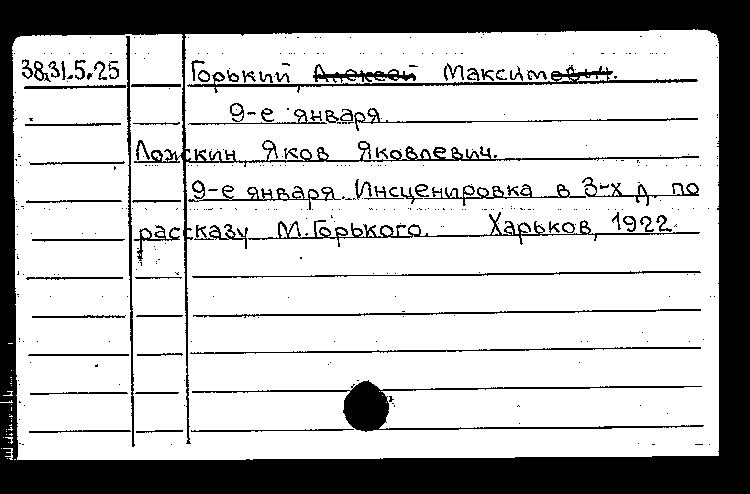 38.31.5.25 Горький, Алексей Максимович.
9-е января.
Ложкин, Яков Яковлевич.
9-е января. Инсценировка в 3-х д. по
рассказу М.Горького. Харьков, 1922.